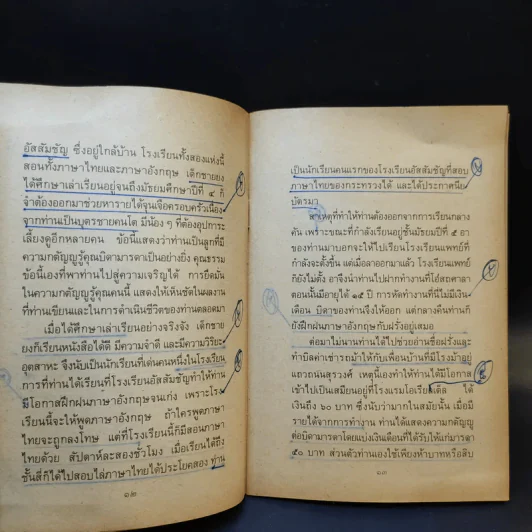 อัสสัมชัญ ซึ่งอยู่ใกล้บ้าน โรงเรียนทั้งสองแห่งนี้
สอนทั้งภาษาไทยและภาษาอังกฤษ เด็กชายยง
ได้ศึกษาเล่าเรียนอยู่จนถึงมัธยมศึกษาปีที่ ๔ ก็
จำต้องออกมาช่วยหารายได้จุนเจือครอบครัวเนื่อง
จากท่านเป็นบุตรชายคนโต มีน้อง ๆ ที่ต้องอุปการะ
เลี้ยงดูอีกหลายคน ข้อนี้แสดงว่าท่านเป็นลูกที่มี
ความกตัญญูรู้คุณบิดามารดาเป็นอย่างยิ่ง คุณธรรม
ข้อนี้เองที่พาท่านไปสู่ความเจริญได้ การยึดมั่น
ในความกตัญญูรู้คุณคนนี้ แสดงให้เห็นชัดในผลงาน
ที่ท่านเขียนและในการดำเนินชีวิตของท่านตลอดมา
เมื่อได้ศึกษาเล่าเรียนอย่างจริงจัง เด็กชาย
ยงก็เรียนหนังสือได้ดี มีความจำดี และมีความวิริยะ
อุตสาหะ จึงนับเป็นนักเรียนที่เด่นคนหนึ่งในโรงเรียน
การที่ท่านได้เรียนที่โรงเรียนอัสสัมชัญทำให้ท่าน
มีโอกาสฝึกฝนภาษาอังกฤษจนเก่ง เพราะโรง
เรียนนี้จะให้พูดภาษาอังกฤษ ถ้าใครพูดภาษา
ไทยจะถูกลงโทษ แต่ที่โรงเรียนนี้ก็มีสอนภาษา
ไทยด้วย สัปดาห์ละสองชั่วโมง เมื่อเรียนได้ถึง
ชั้นสี่ก็ได้ไปสอบไล่ภาษาไทยได้ประโยคสอง ท่าน
๑๒
เป็นนักเรียนคนแรกของโรงเรียนอัสสัมชัญที่สอบ
ภาษาไทยของกระทรวงได้ และได้ประกาศนีย
บัตรมา
สาเหตุที่ทำให้ท่านต้องออกจากการเรียนกลาง
คัน เพราะขณะที่กำลังเรียนอยู่ชั้นมัธยมปีที่ ๕ อา
ของท่านมาบอกจะให้ไปเรียนโรงเรียนแพทย์ที่
กำลังจะตั้งขึ้น แต่เมื่อลาออกมาแล้ว โรงเรียนแพทย์
ก็ยังไม่ตั้ง อาจึงนำท่านไปฝากทำงานที่โอสถศาลา
ตอนนั้นมีอายุได้ ๑๕ ปี การหัดทำงานที่นี่ไม่มีเงิน
เดือน บิดาของท่านจึงให้ออก แต่กลางคืนท่านก็
ยังฝึกฝนภาษาอังกฤษกับฝรั่งอยู่เสมอ
ต่อมาไม่นานท่านได้ไปช่วยอ่านชื่อฝรั่งและ
ทำบิลค่าเช่ารถม้าให้กับเพื่อนบ้านที่มีโรงม้าอยู่
แถวถนนสุรวงศ์ เหตุนี้เองทำให้ท่านได้มีโอกาส
เข้าไปเป็นเสมียนอยู่ที่โรงแรมโอเรียนเต็ล ได้
เงินถึง ๖๐ บาท ซึ่งนับว่ามากในสมัยนั้น เมื่อมี
รายได้จากการทำงาน ท่านได้แสดงความกตัญญู
ต่อบิดามารดาโดยแบ่งเงินเดือนที่ได้รับให้แก่มารดา
๕๐ บาท ส่วนตัวท่านเองใช้เพียงห้าบาทหรือสิบ
๑๓